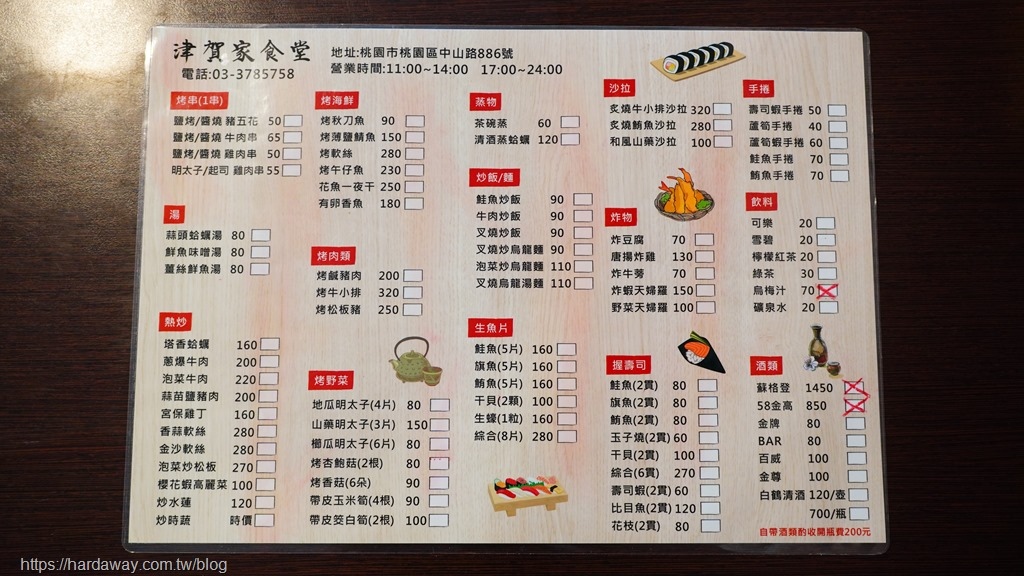 津賀家食堂
電話:03-3785758
地址:桃園市桃園區中山路886號
營業時間:11:00~14:00 17:00~24:00
烤串(1串)
鹽烤/醬燒 豬五花 50
鹽烤/醬燒 牛肉串 65
鹽烤/醬燒 雞肉串 50
明太子/起司 雞肉串 55
湯
蒜頭蛤蠣湯 80
鮮魚味噌湯 80
薑絲鮮魚湯 80
熱炒
塔香蛤蠣 160
蔥爆牛肉 200
泡菜牛肉 220
蒜苗鹽豬肉 200
宮保雞丁 160
香蒜軟絲 280
金沙軟絲 280
泡菜炒松板 270
櫻花蝦高麗菜 100
炒水蓮 120
炒時蔬 時價
烤海鮮
烤秋刀魚 90
烤薄鹽鯖魚 150
烤軟絲 280
烤午仔魚 230
花魚一夜干 250
有卵香魚 180
烤肉類
烤鹹豬肉 200
烤牛小排 320
烤松板豬 250
烤野菜
地瓜明太子(4片) 80
山藥明太子(3片) 150
櫛瓜明太子(6片) 80
烤杏鮑菇(2根) 80
烤香菇(6朵) 90
帶皮玉米筍(4根) 90
帶皮茭白筍(2根) 100
蒸物
茶碗蒸 60
清酒蒸蛤蠣 120
炒飯/麵
鮭魚炒飯 90
牛肉炒飯 90
叉燒炒飯 90
叉燒炒烏龍麵 90
泡菜炒烏龍麵 110
叉燒烏龍湯麵 110
生魚片
鮭魚(5片) 160
旗魚(5片) 160
鮪魚(5片) 160
干貝(2顆) 100
生蠔(1粒) 160
綜合(8片) 280
沙拉
炙燒牛小排沙拉 320
炙燒鮪魚沙拉 280
和風山藥沙拉 100
炸物
炸豆腐 70
唐揚炸雞 130
炸牛蒡 70
炸蝦天婦羅 150
野菜天婦羅 100
握壽司
鮭魚(2貫) 80
旗魚(2貫) 80
鮪魚(2貫) 80
玉子燒(2貫) 60
干貝(2貫) 100
綜合(6貫) 270
壽司蝦(2貫) 60
比目魚(2貫) 120
花枝(2貫) 80
手捲
壽司蝦手捲 50
蘆筍手捲 40
蘆筍蝦手捲 60
鮭魚手捲 70
鮪魚手捲 70
飲料
可樂 20
雪碧 20
檸檬紅茶 20
綠茶 30
烏梅汁 70
礦泉水 20
酒類
蘇格登 1450
58金高 850
金牌 80
BAR 80
百威 100
金尊 100
白鶴清酒 120/壺
700/瓶
自帶酒類酌收開瓶費200元
https://hardaway.com.tw/blog